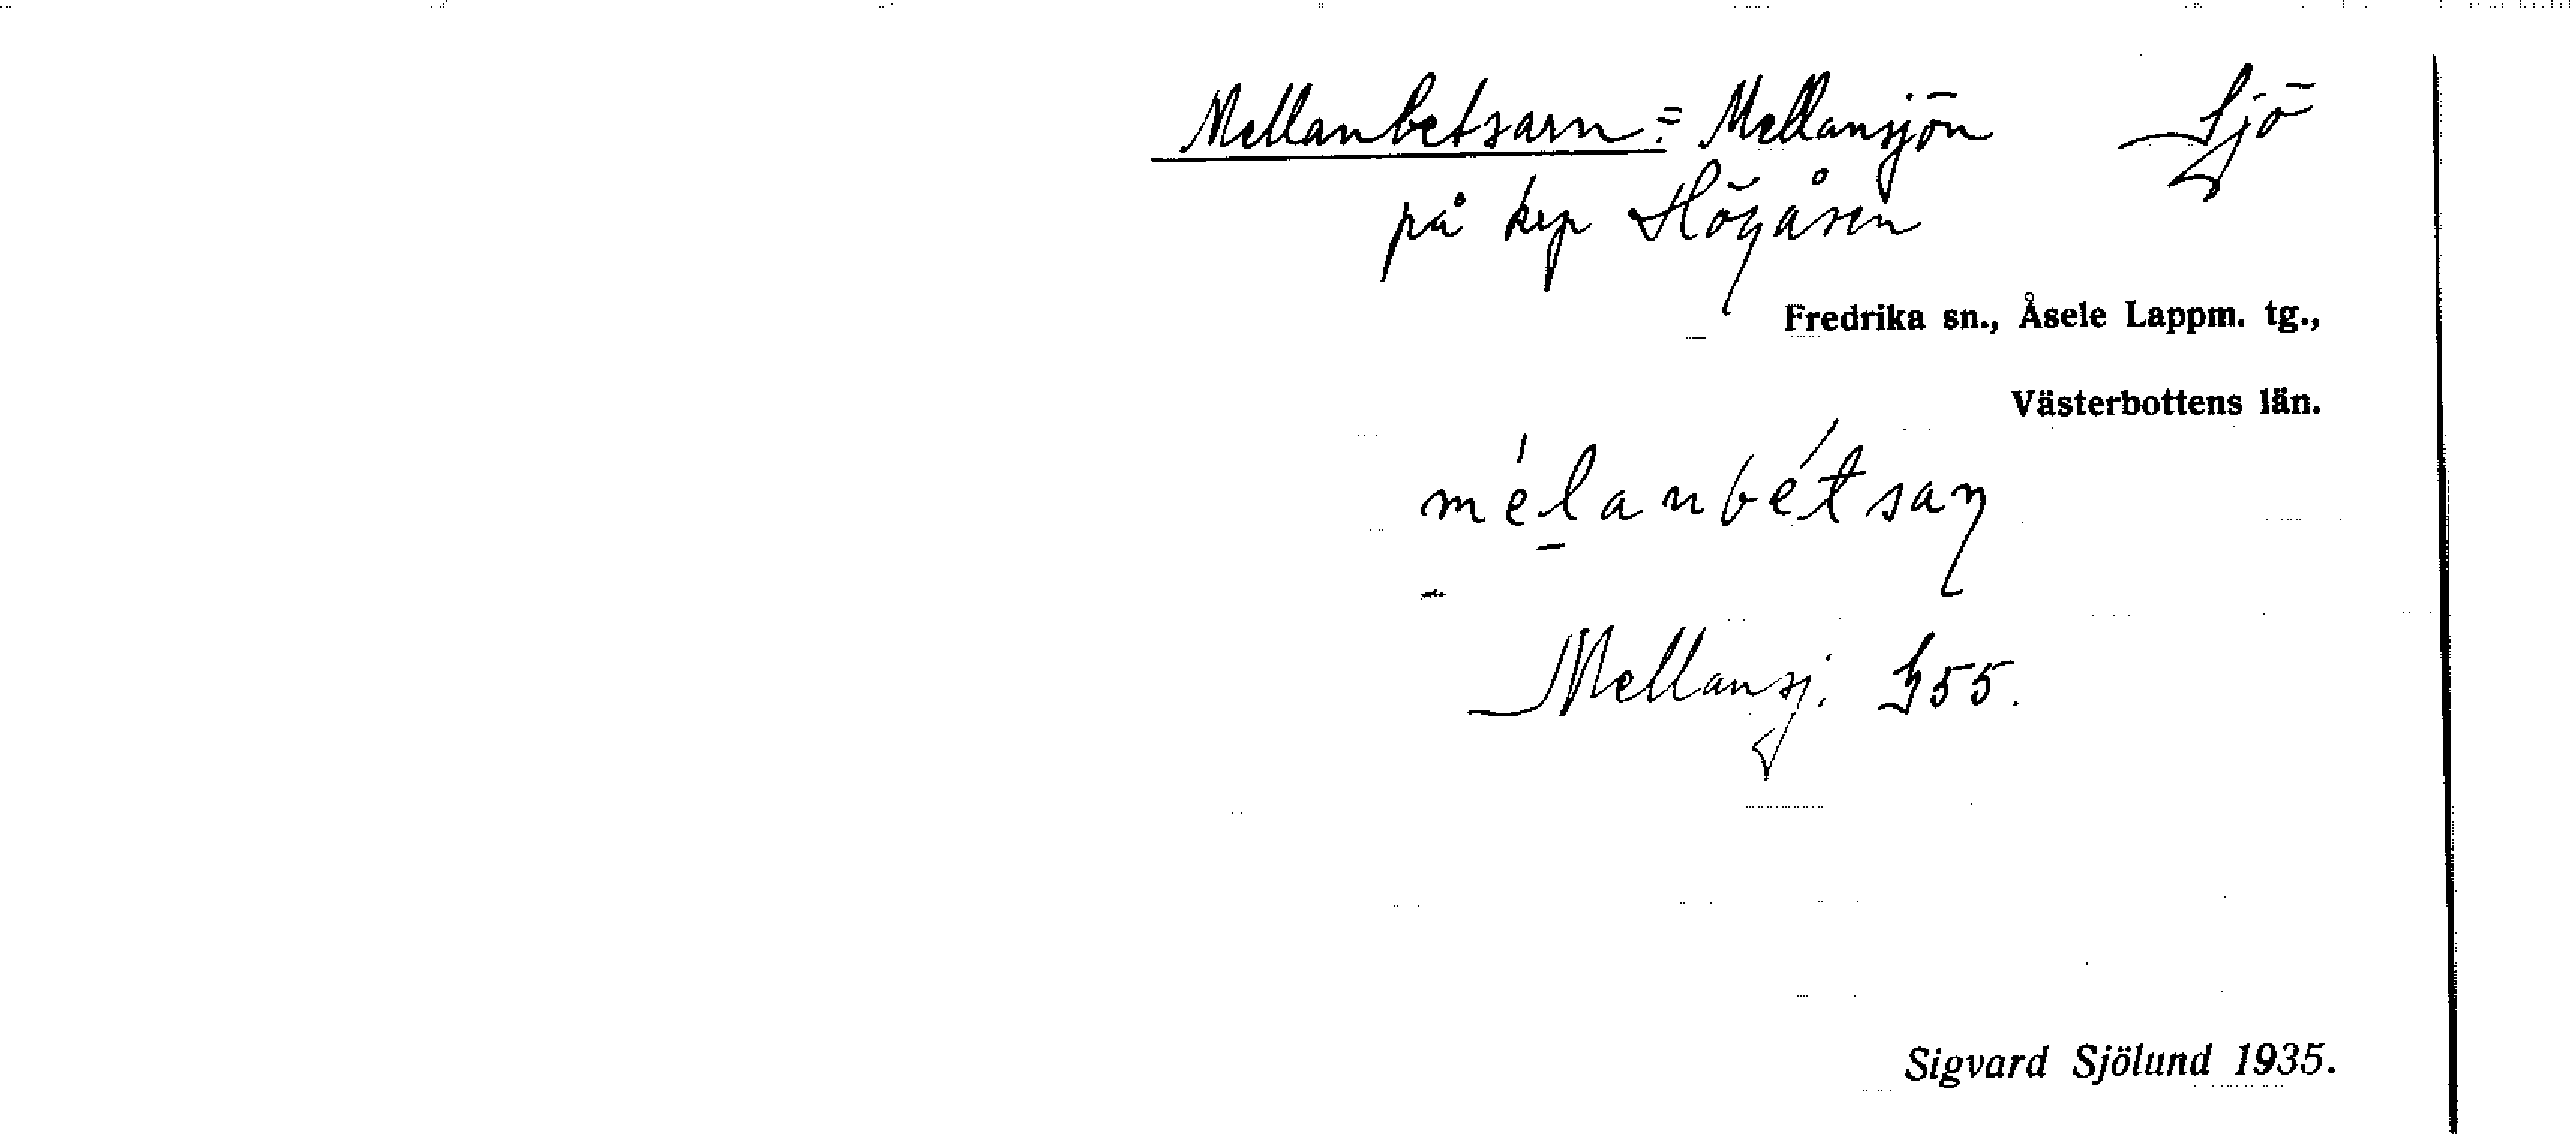 Mellanbetsarn = Mellansjön Sjö
på krp Högåsen
Fredrika sn., Åsele Lappm. tg.,
Västerbottens län.
mélanbétsaɳ
Mellansj. 355.
Sigvard Sjölund 1935.